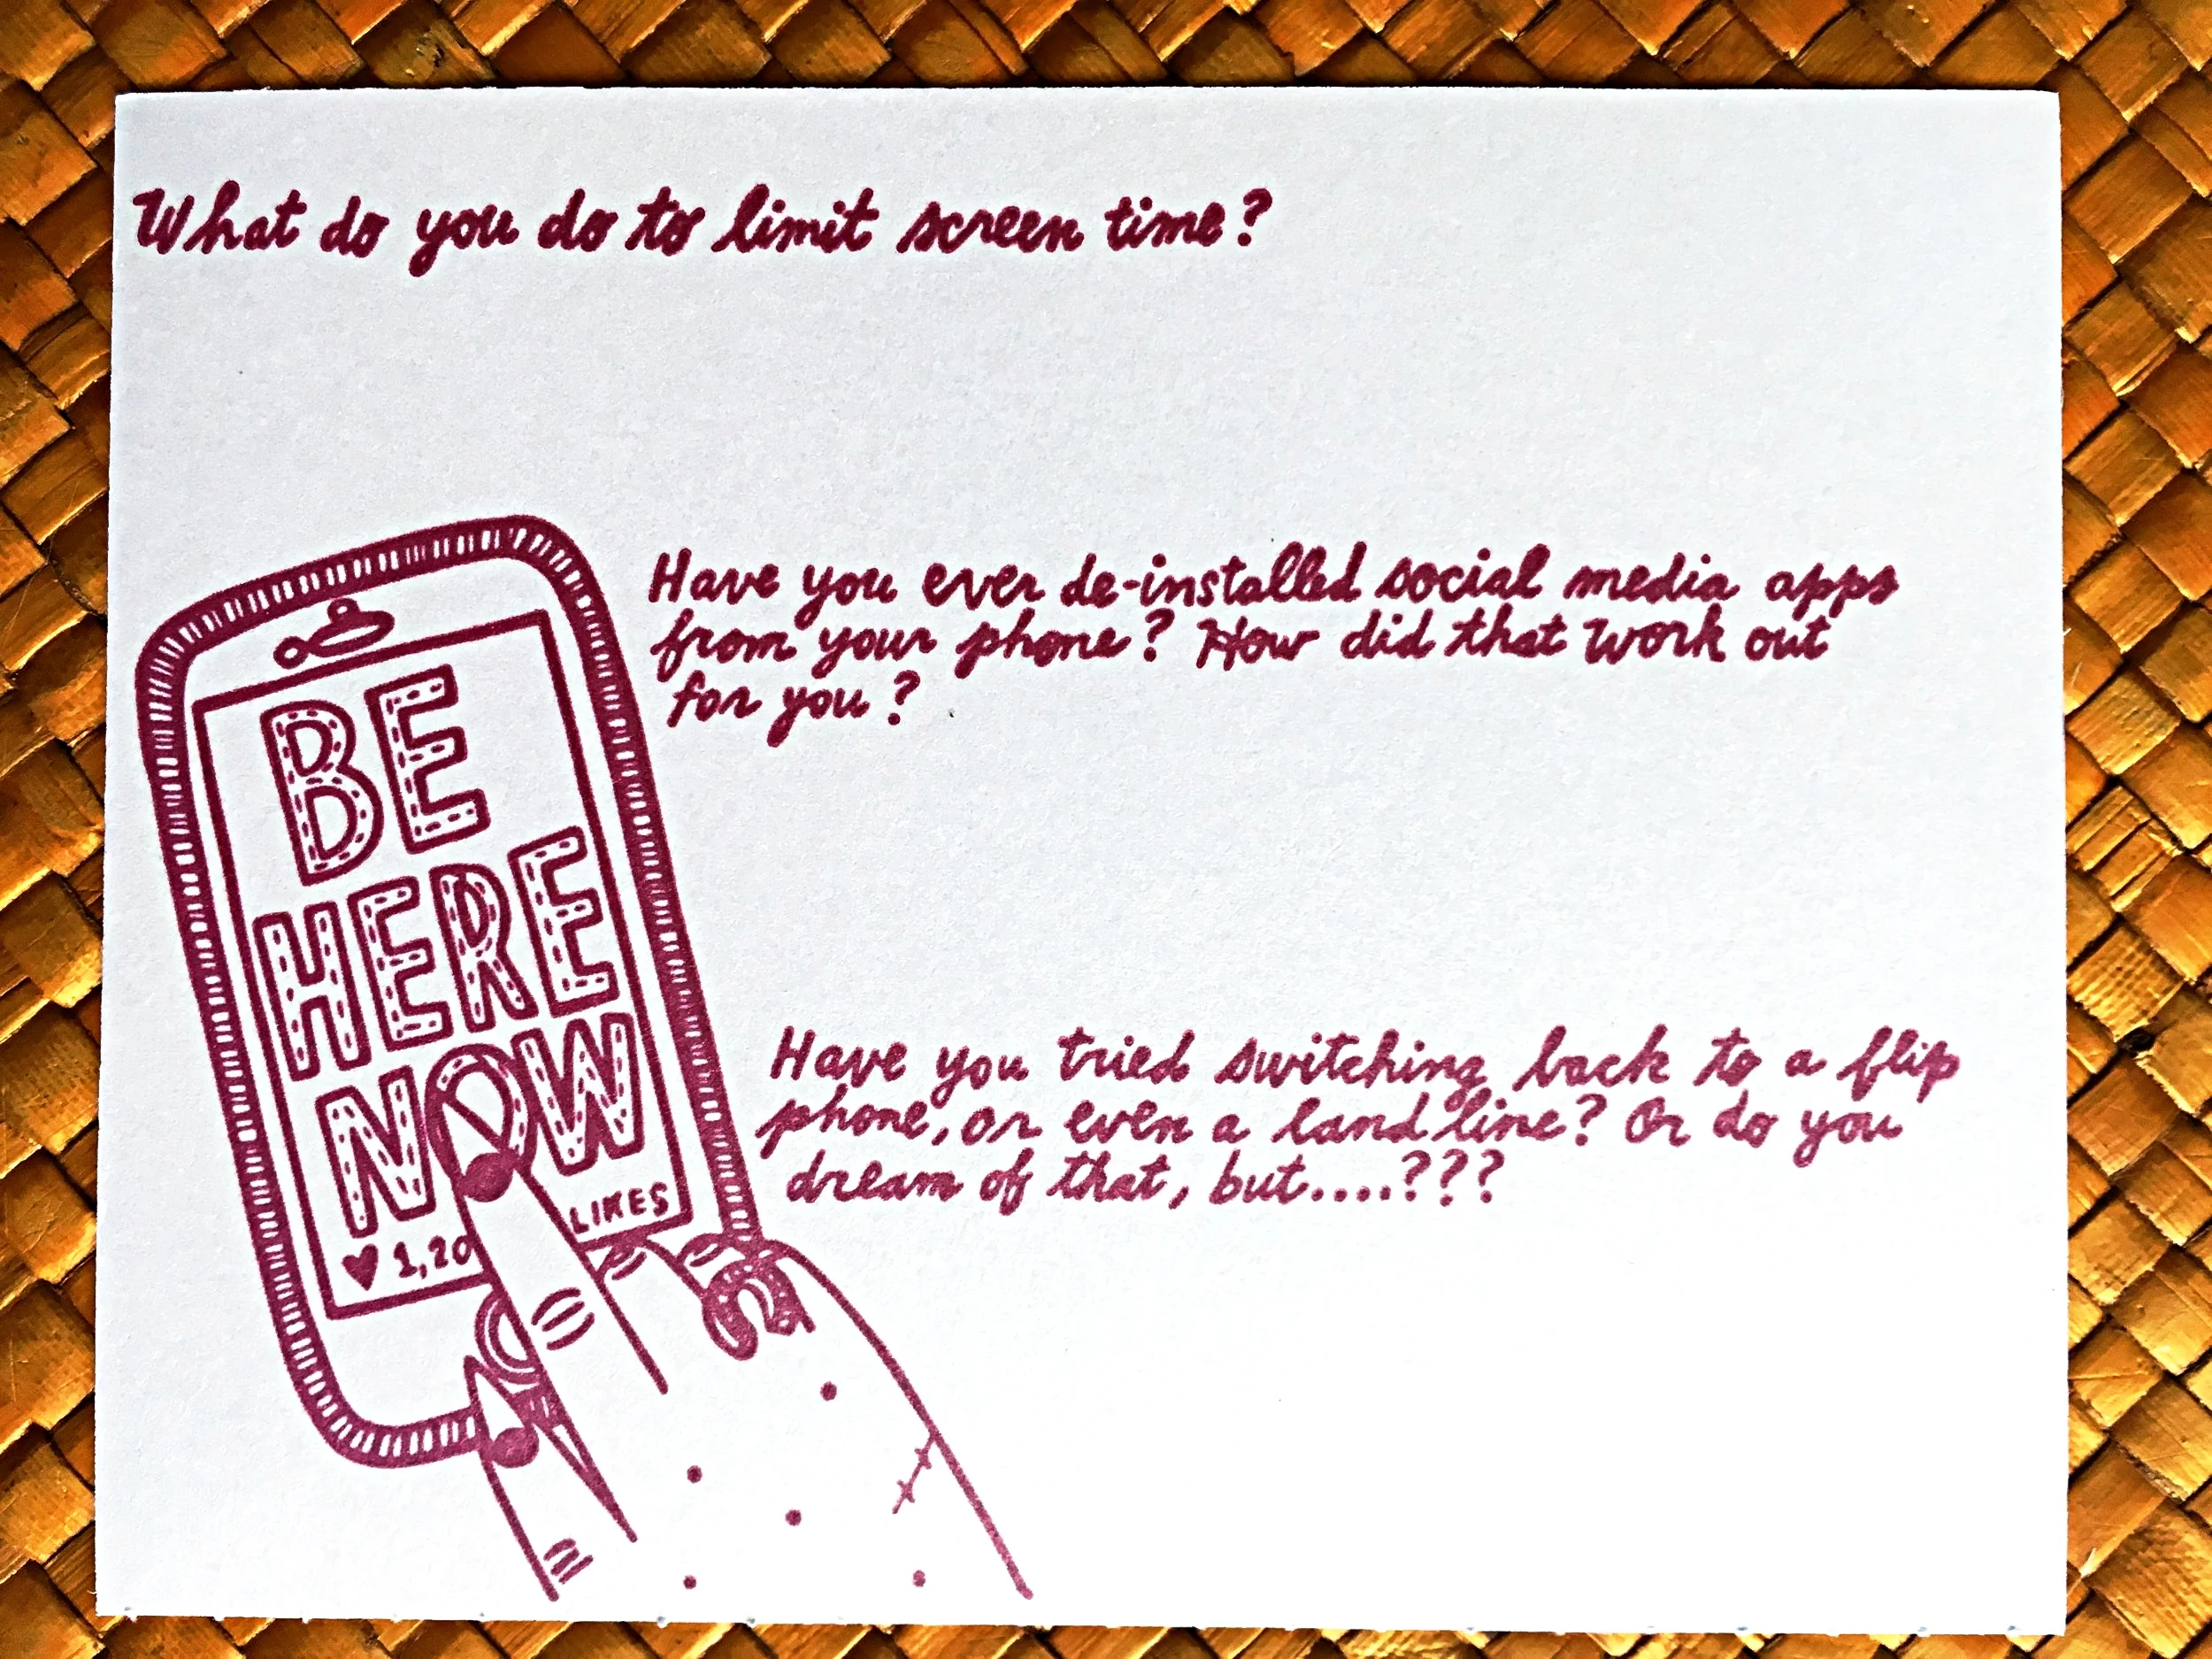 What do you do to limit screen time?
Have you ever de-installed social media apps
from your phone? How did that work out
for you?
BE
HERE
NOW
♥ 1,20 LIKES
Have you tried switching back to a flip
phone, or even a land line? Or do you
dream of that, but....???